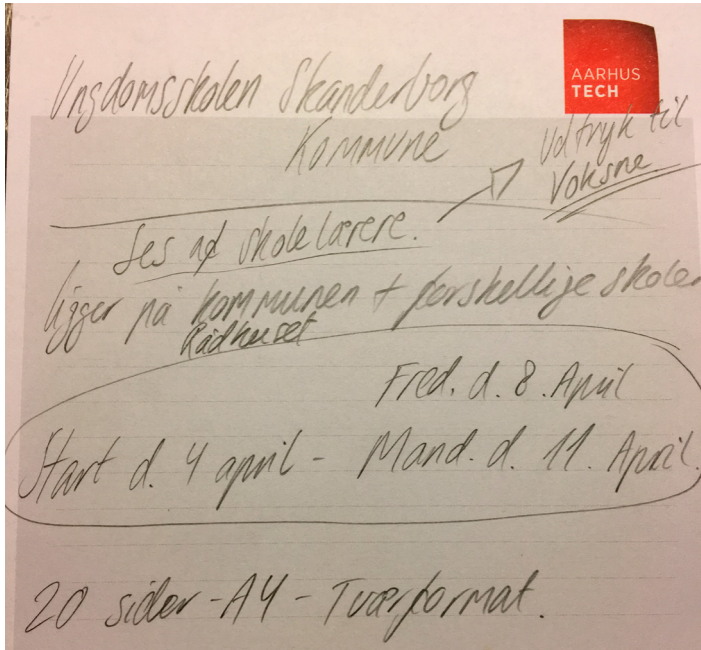 Ungdomsskolen Skanderborg
Kommune
AARHUS
TECH
Udtryk til
Voksne
Ses af skolelærere.
ligger på kommunen + forskellige skoler
Rådhuset
Fred. d. 8. April
Start d. 4 april - Mand. d. 11. April.
20 sider - A4 - Tværformat.